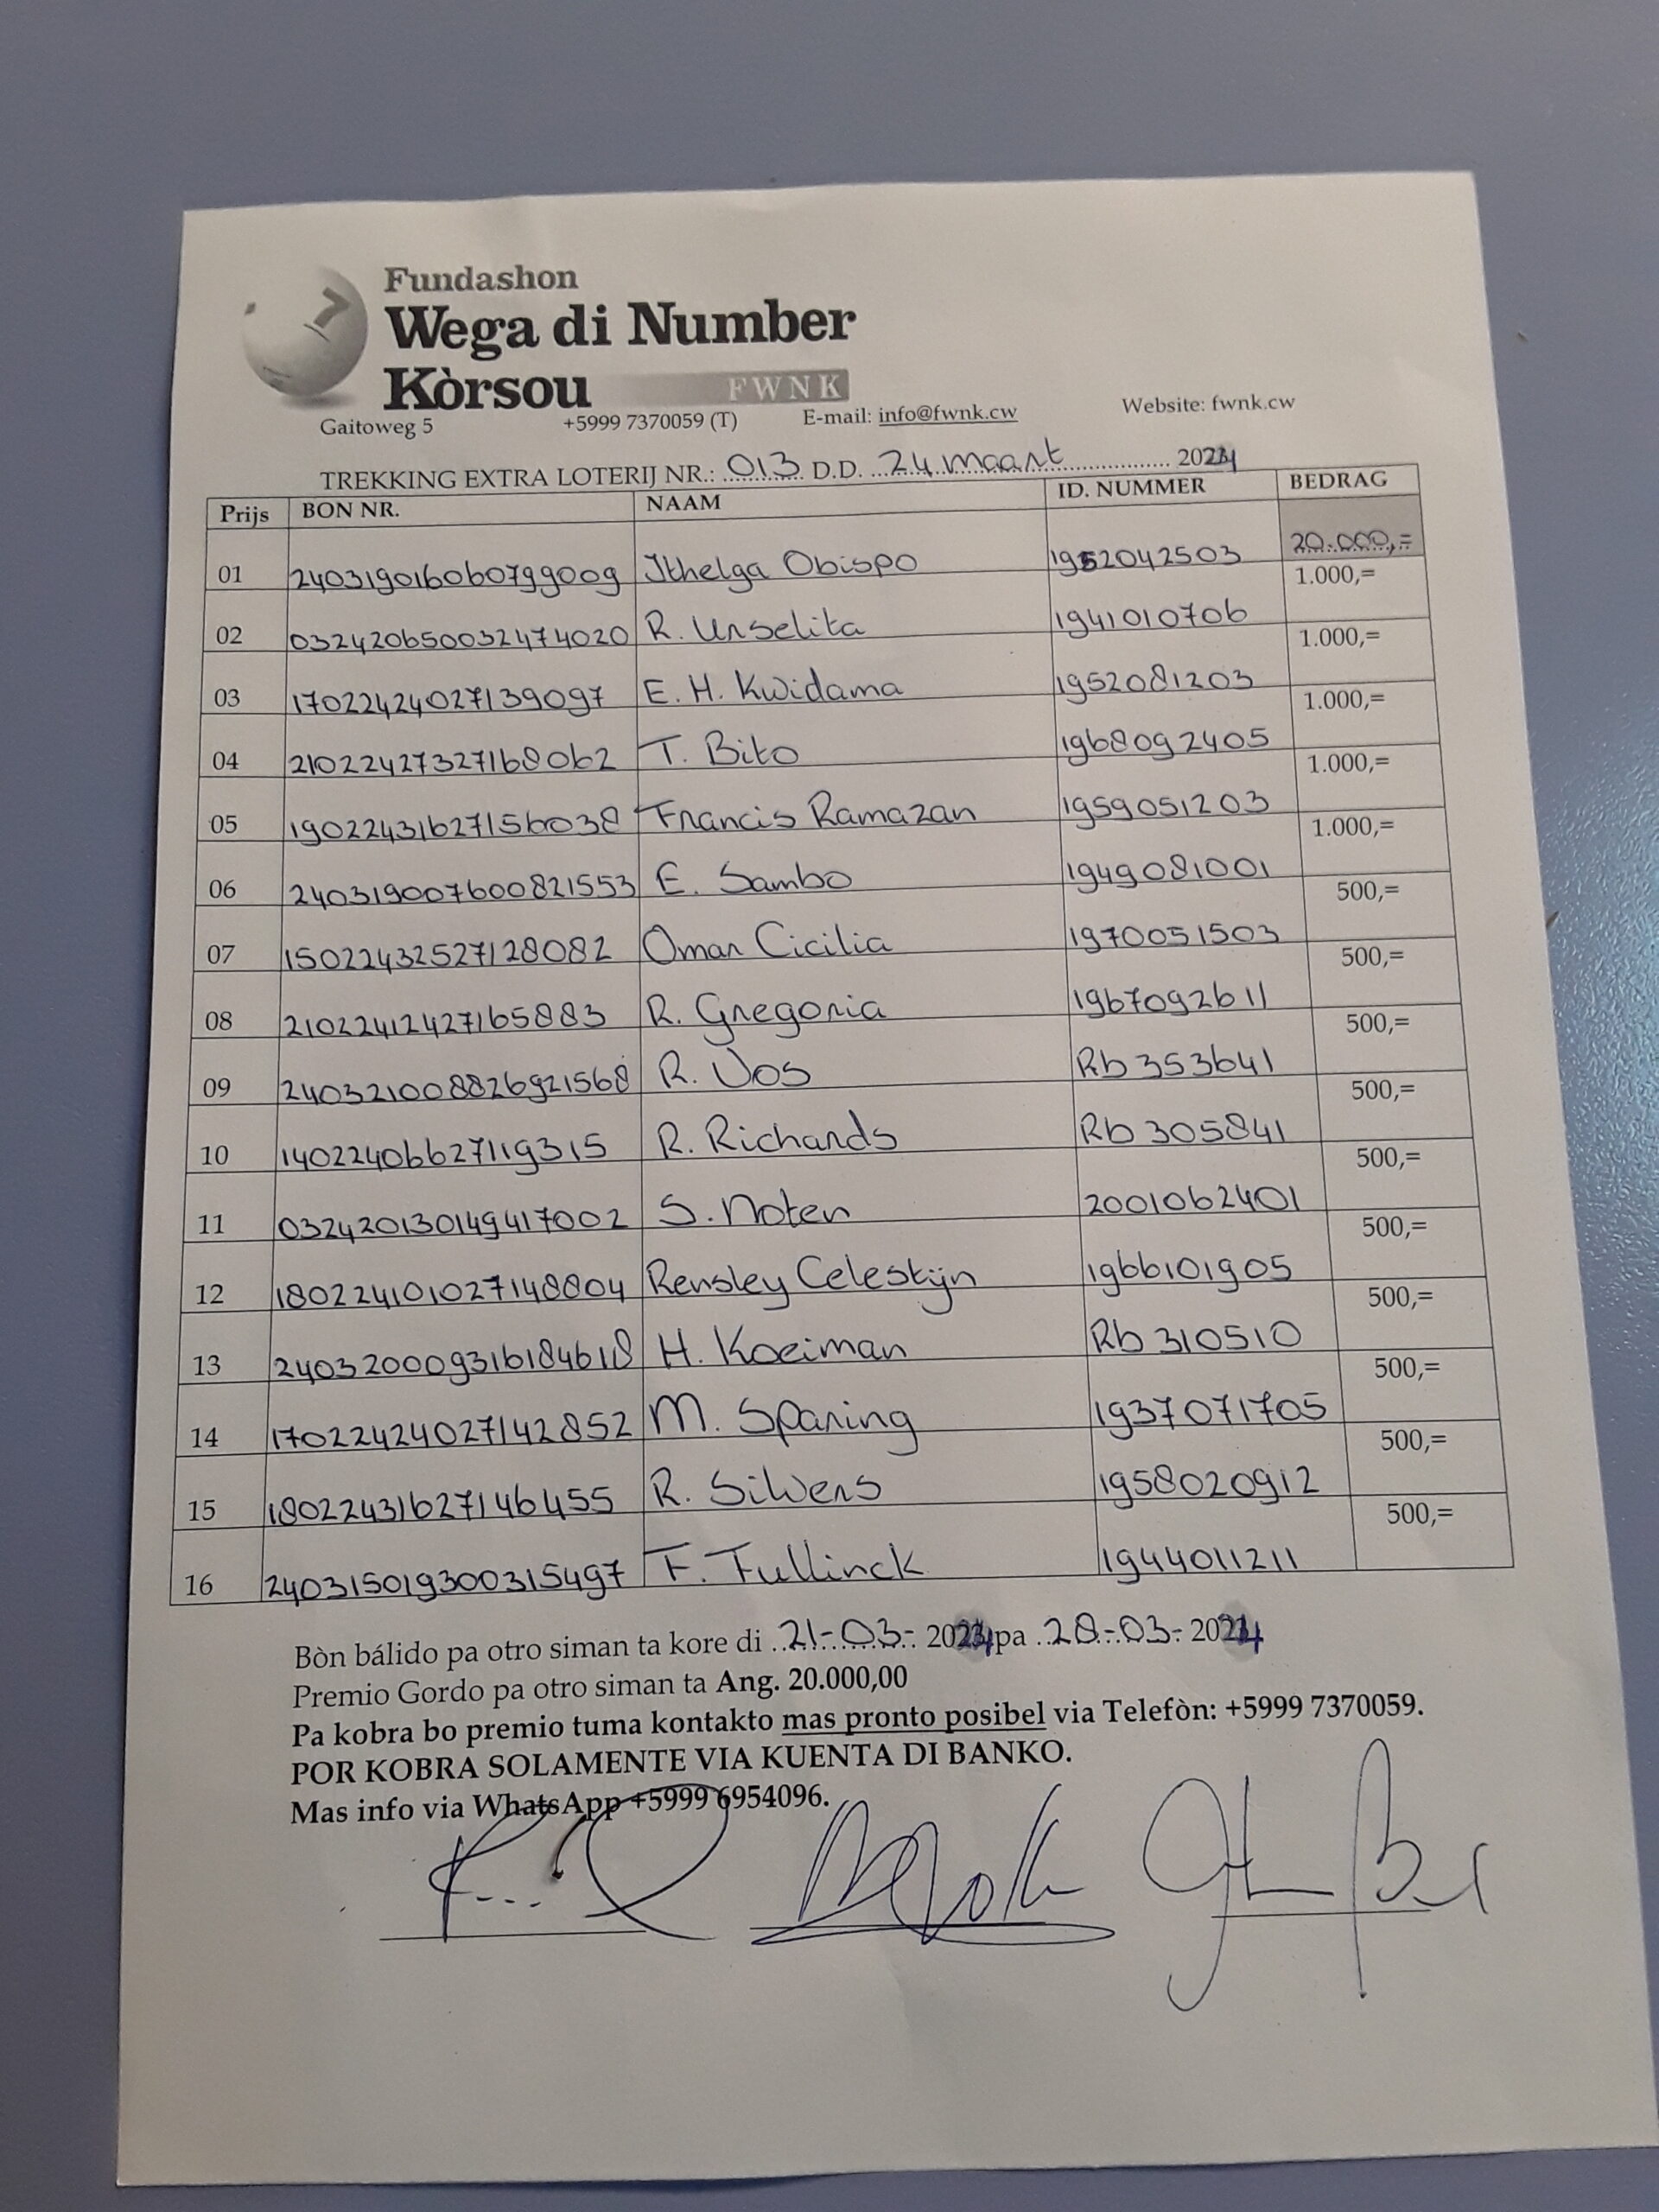 Fundashon
Wega di Number
Kòrsou FWNK
Gaitoweg 5 +5999 7370059 (T) E-mail: info@fwnk.cw Website: fwnk.cw
TREKKING EXTRA LOTERIJ NR.: 013 D.D. 24 maart 2024
Prijs BON NR. NAAM ID. NUMMER BEDRAG
01 240319016060799009 Jthelga Obispo 1952042503 20.000,=
02 032420650032474020 R. Urselita 1941010706 1.000,=
03 17022424027139097 E. H. Kwidama 1952081203 1.000,=
04 21022427327168062 T. Bito 1968092405 1.000,=
05 19022431627156038 Francis Ramazan 1959051203 1.000,=
06 240319007600821553 E. Sambo 1949081001 1.000,=
07 15022432527128082 Omar Cicilia 1970051503 500,=
08 21022412427165883 R. Gregoria 1967092611 500,=
09 240321008826921568 R. Vos Rb 353641 500,=
10 14022406627119315 R. Richards Rb 305841 500,=
11 032420130149417002 S. Noten 2001062401 500,=
12 180224101027148804 Rensley Celestijn 1966101905 500,=
13 240320009316184618 H. Koeiman Rb 310510 500,=
14 17022424027142852 M. Sparing 1937071705 500,=
15 18022431627146455 R. Silvers 1958020912 500,=
16 240315019300315497 F. Fullinck 1944011211 500,=
Bòn bálido pa otro siman ta kore di 21-03- 2024 pa 28-03- 2024
Premio Gordo pa otro siman ta Ang. 20.000,00
Pa kobra bo premio tuma kontakto mas pronto posibel via Telefòn: +5999 7370059.
POR KOBRA SOLAMENTE VIA KUENTA DI BANKO.
Mas info via WhatsApp +5999 6954096.